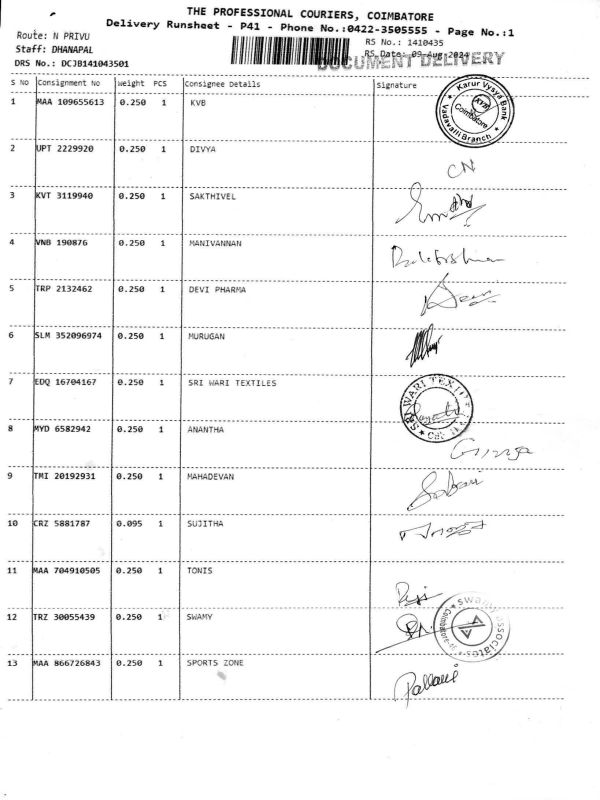 THE PROFESSIONAL COURIERS, COIMBATORE
Delivery Runsheet - P41 - Phone No.:0422-3505555 - Page No.:1
Route: N PRIVU
RS No.: 1410435
Staff: DHANAPAL
RS Date: 09-Aug-2024
DRS No.: DCJB141043501
DOCUMENT DELIVERY
S No Consignment No Weight PCS Consignee Details Signature
1 MAA 109655613 0.250 1 KVB
Karur Vysya Bank
KVB
Coimbatore
Vadavalli Branch
2 UPT 2229920 0.250 1 DIVYA
CN
3 KVT 3119940 0.250 1 SAKTHIVEL
4 VNB 190876 0.250 1 MANIVANNAN
5 TRP 2132462 0.250 1 DEVI PHARMA
6 SLM 352096974 0.250 1 MURUGAN
7 EDQ 16704167 0.250 1 SRI WARI TEXTILES
8 MYD 6582942 0.250 1 ANANTHA
9 TMI 20192931 0.250 1 MAHADEVAN
10 CRZ 5881787 0.095 1 SUJITHA
11 MAA 704910505 0.250 1 TONIS
12 TRZ 30055439 0.250 1 SWAMY
Swamy Associates
13 MAA 866726843 0.250 1 SPORTS ZONE
Pallavi